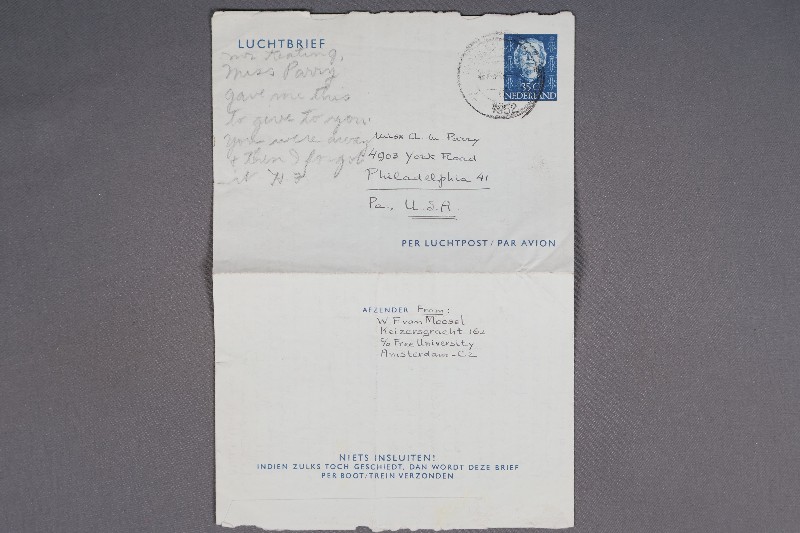 LUCHTBRIEF
Mr Keating,
Miss Parry
gave me this
to give to you
you were away
& then I forgot
it
35 C
NEDERLAND
1952
Miss A. M. Parry
4903 York Road
Philadelphia 41
Pa., U.S.A.
PER LUCHTPOST / PAR AVION
AFZENDER From:
W F van Moosel
Keizersgracht 162
c/o Free University
Amsterdam-C2
NIETS INSLUITEN!
INDIEN ZULKS TOCH GESCHIEDT, DAN WORDT DEZE BRIEF
PER BOOT/TREIN VERZONDEN